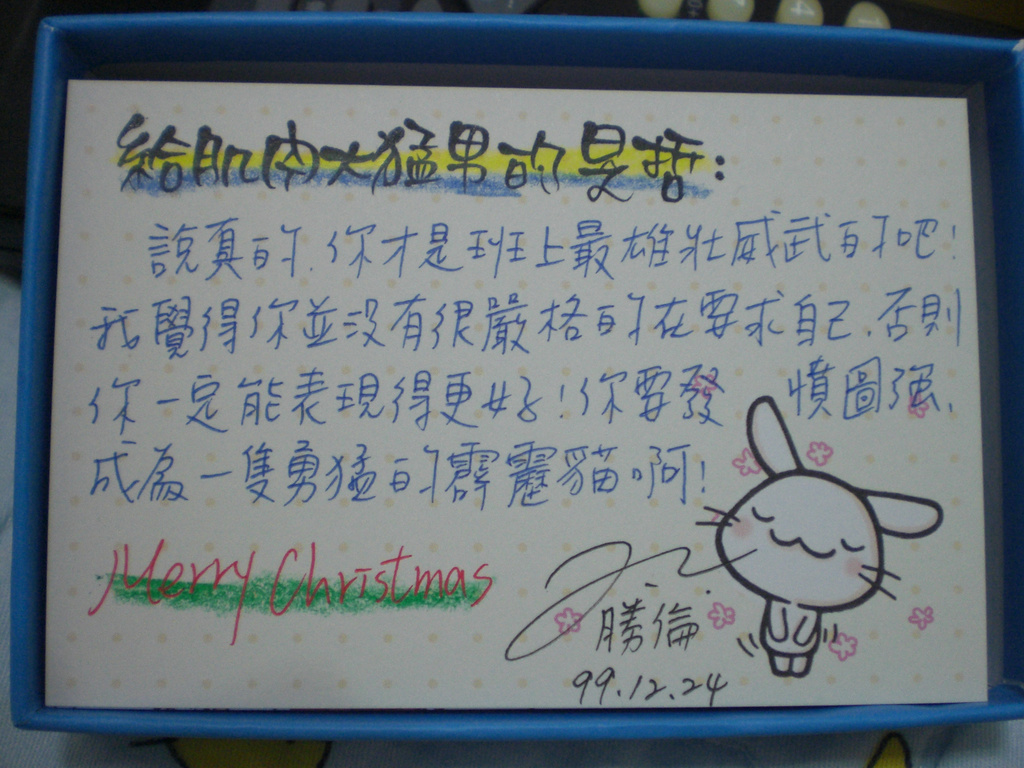 給肌肉大猛男的昱哲：
說真的，你才是班上最雄壯威武的吧！
我覺得你並沒有很嚴格的在要求自己，否則
你一定能表現得更好！你要發 憤圖強，
成為一隻勇猛的霹靂貓啊！
Merry Christmas
勝倫
99.12.24